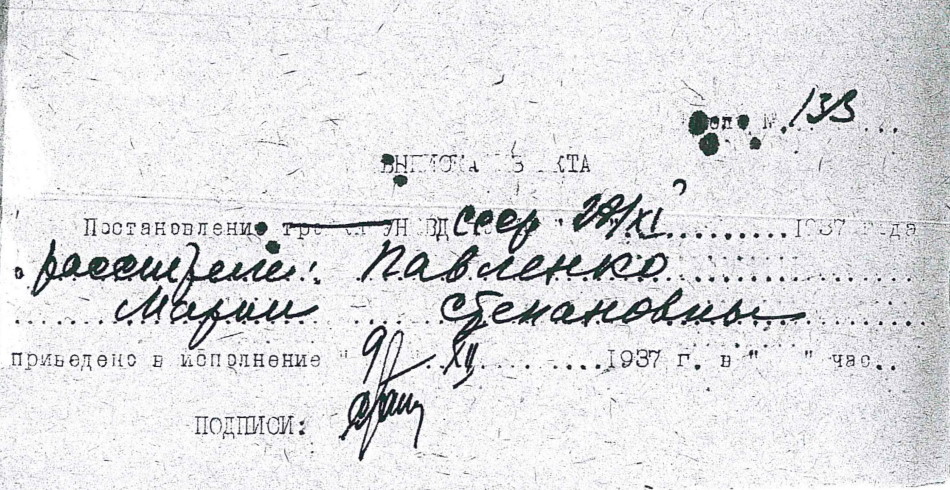 № 133
ВЫПИСКА ИЗ АКТА
Постановление тройки УНКВД СССР 1937 года
о расстреле: Павленко
Марии Степановны
приведено в исполнение " 9 " XII 1937 г. в " " час..
ПОДПИСИ: